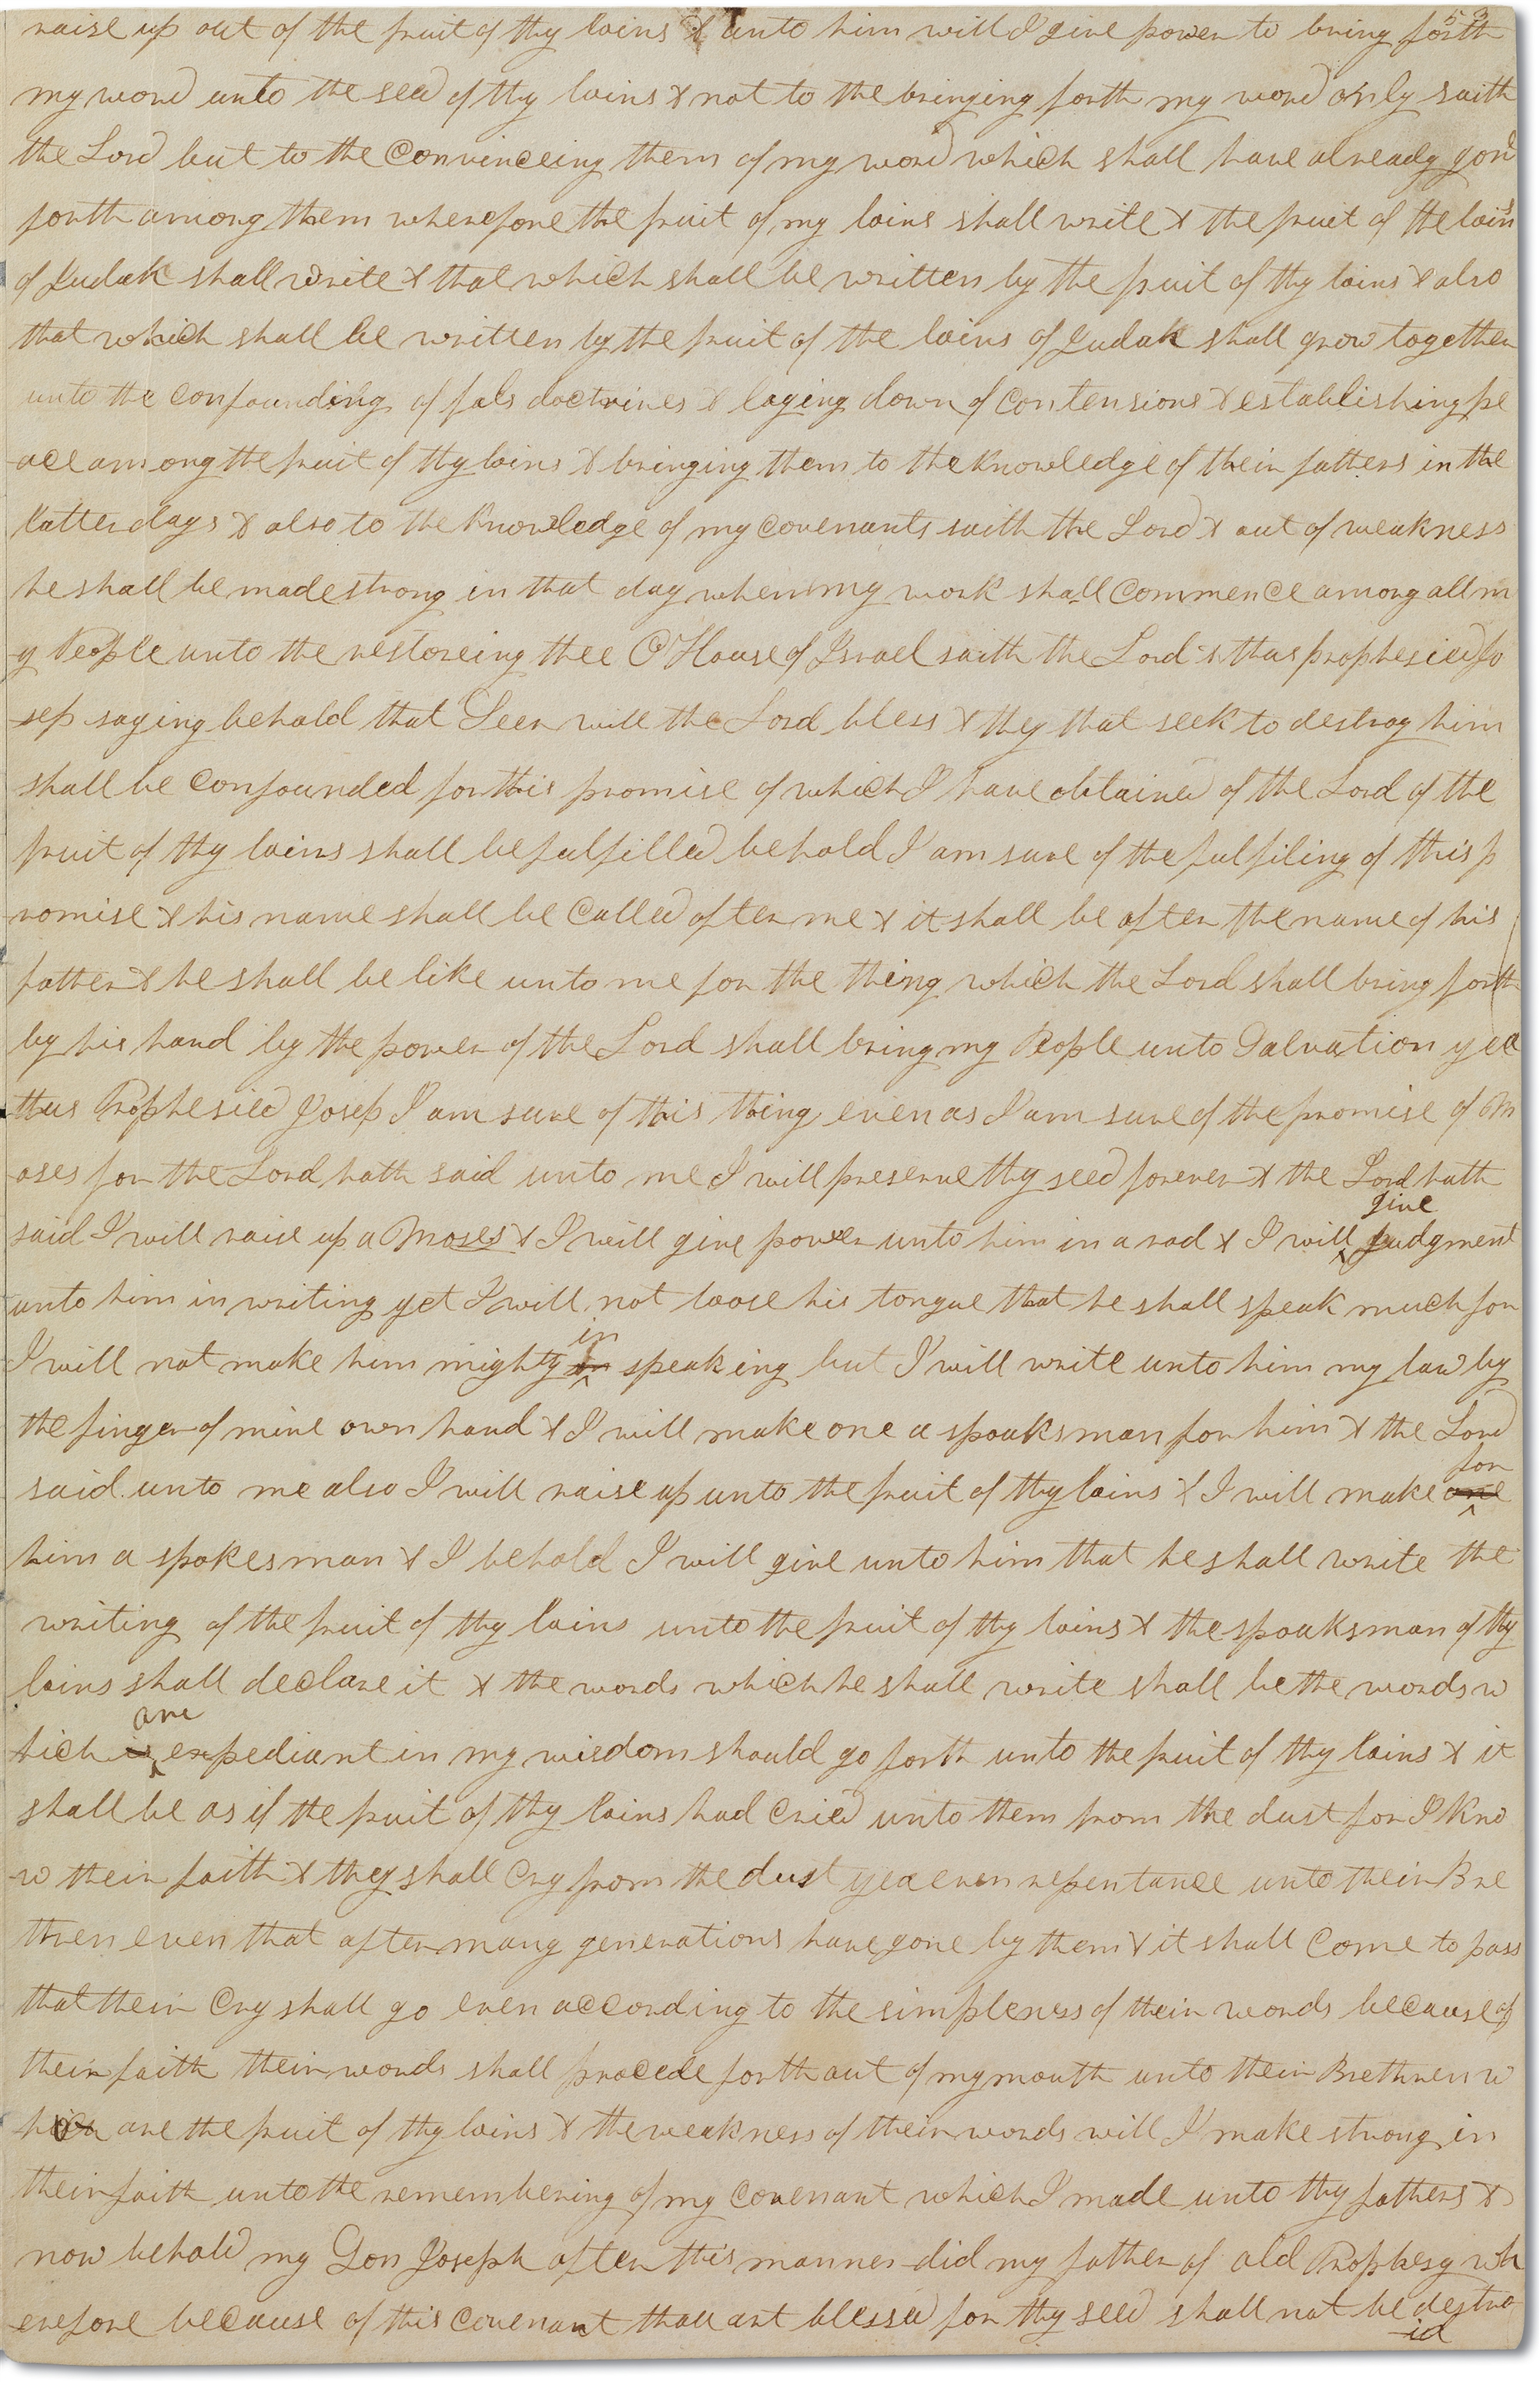 53
raise up out of the fruit of thy loins & unto him will I give power to bring forth
my word unto the seed of thy loins & not to the bringing forth my word only saith
the Lord but to the Convinceing them of my word which shall have already gone
forth among them wherefore the fruit of my loins shall write & the fruit of the loins
of Judah shall write & that which shall be written by the fruit of thy loins & also
that which shall be written by the fruit of the loins of Judah shall grow together
unto the confounding of fals doctrines & laying down of contensions & establishing pe
ace among the fruit of thy loins & bringing them to the knowledge of their fathers in the
latter days & also to the knowledge of my covenants saith the Lord & out of weakness
he shall be made strong in that day when my work shall Commence among all m
y People unto the restoreing thee O House of Israel saith the Lord & thus prophesied Jo
sep saying behold that Seer will the Lord bless & they that seek to destroy him
shall be Confounded for this promise of which I have obtained of the Lord of the
fruit of thy loins shall be fulfilled behold I am sure of the fulfiling of this p
romise & his name shall be Called after me & it shall be after the name of his
father & he shall be like unto me for the thing which the Lord shall bring forth
by his hand by the power of the Lord shall bring my People unto Salvation yea
thus Prophesied Josep I am sure of this thing even as I am sure of the promise of M
oses for the Lord hath said unto me I will preserve thy seed forever & the Lord hath
give
said I will raise up a Moses & I will give power unto him in a rod & I will judgment
unto him in writing yet I will not loose his tongue that he shall speak much for
in
I will not make him mighty speaking but I will write unto him my law by
the finger of mine own hand & I will make one a spoaksman for him & the Lord
for
said unto me also I will raise up unto the fruit of thy loins & I will make one
him a spokesman & I behold I will give unto him that he shall write the
writing of the fruit of thy loins unto the fruit of thy loins & the spoaksman of thy
loins shall declare it & the words which he shall write shall be the words w
are
hich is expediant in my wisdom should go forth unto the fruit of thy loins & it
shall be as if the fruit of thy loins had Cried unto them from the dust for I kno
w their faith & they shall Cry from the dust yea even repentance unto their Bre
thren even that after many generations have gone by them & it shall Come to pass
that their Cry shall go even according to the simpleness of their words because of
their faith their words shall procede forth out of my mouth unto their Brethren w
ho are the fruit of thy loins & the weakness of their words will I make strong in
their faith unto the remembering of my covenant which I made unto thy fathers &
now behold my Son Joseph after this manner did my father of old Prophesy wh
erefore because of this Covenant thou art blessed for thy seed shall not be destro
id